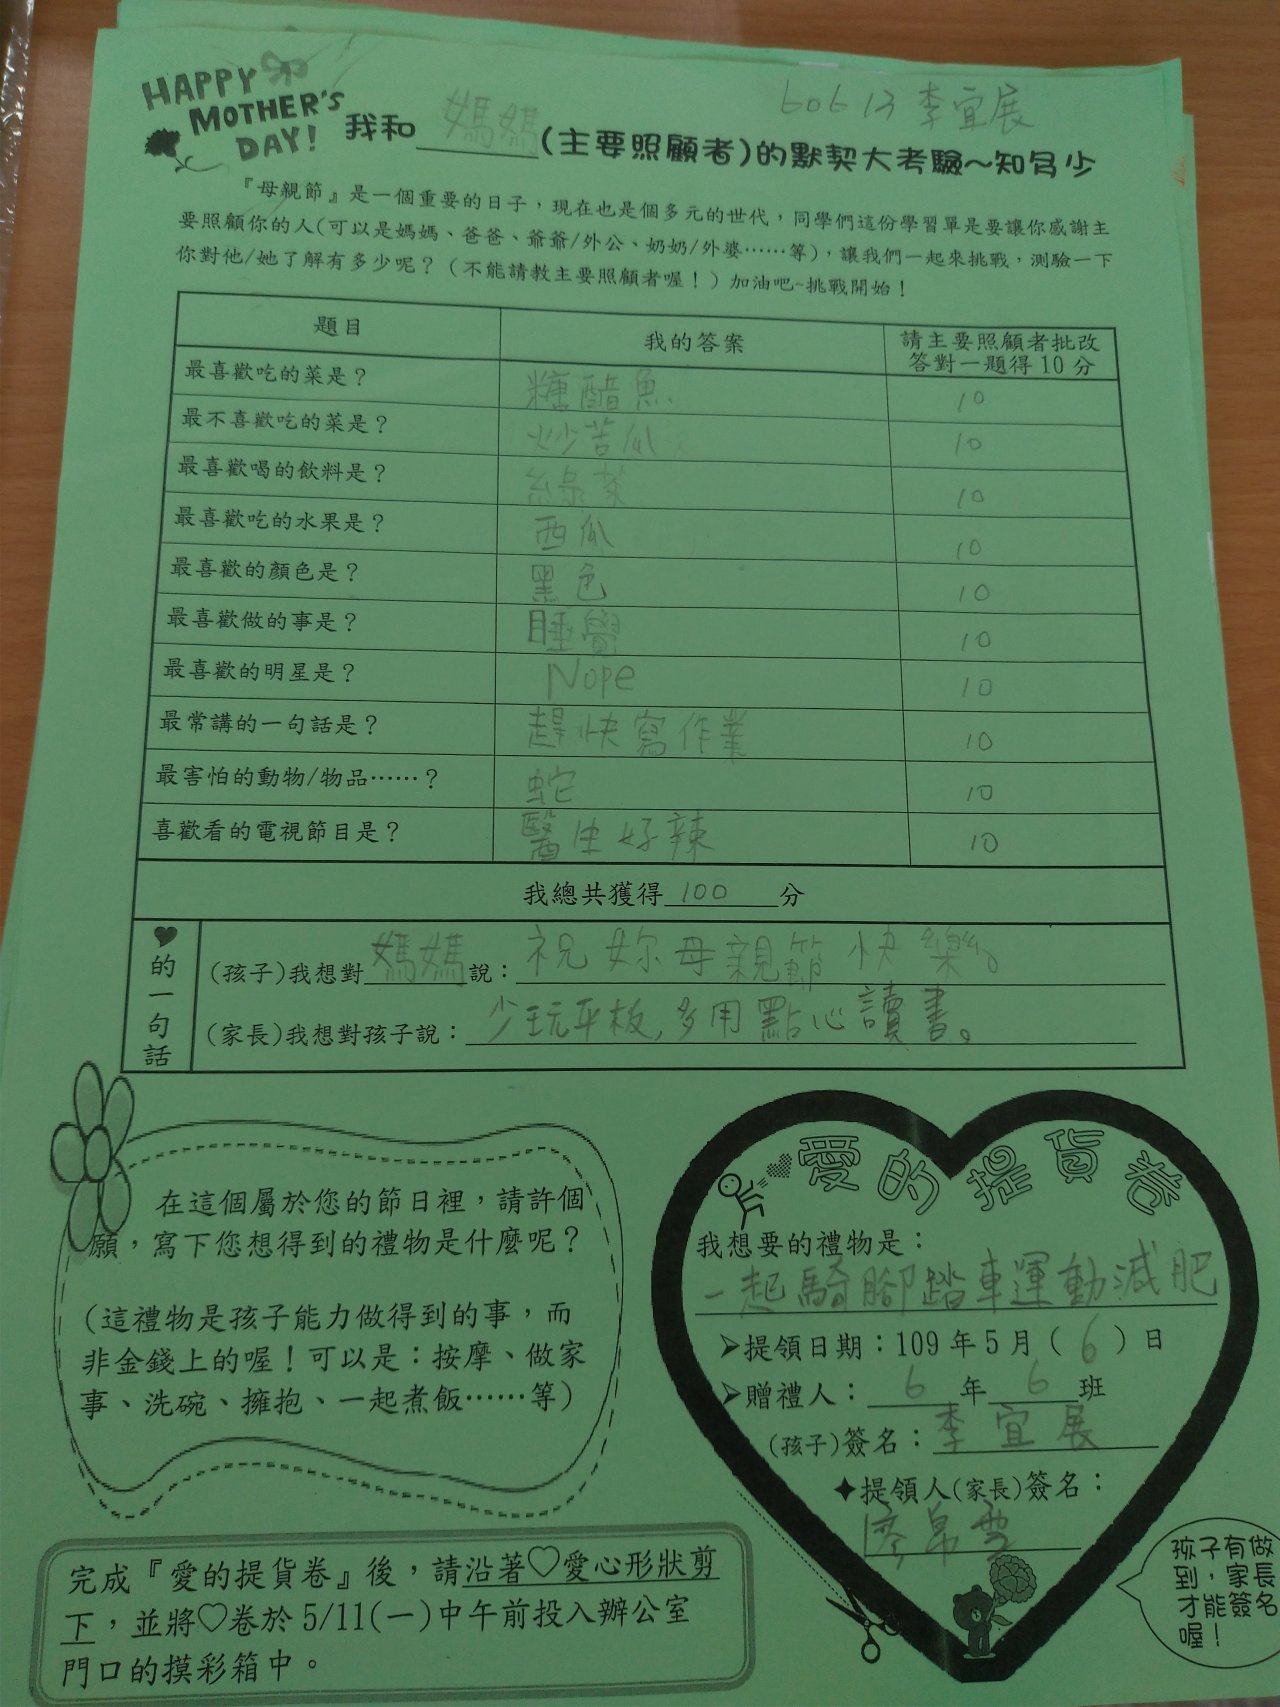 HAPPY
MOTHER'S
DAY!
60613 李宜展
我和媽媽(主要照顧者)的默契大考驗~知多少
『母親節』是一個重要的日子,現在也是個多元的世代,同學們這份學習單是要讓你感謝主
要照顧你的人(可以是媽媽、爸爸、爺爺/外公、奶奶/外婆……等),讓我們一起來挑戰,測驗一下
你對他/她了解有多少呢?(不能請教主要照顧者喔!)加油吧~挑戰開始!
題目 我的答案 請主要照顧者批改
答對一題得10分
最喜歡吃的菜是? 糖醋魚 10
最不喜歡吃的菜是? 炒苦瓜 10
最喜歡喝的飲料是? 綠茶 10
最喜歡吃的水果是? 西瓜 10
最喜歡的顏色是? 黑色 10
最喜歡做的事是? 睡覺 10
最喜歡的明星是? Nope 10
最常講的一句話是? 趕快寫作業 10
最害怕的動物/物品……? 蛇 10
喜歡看的電視節目是? 醫生好辣 10
我總共獲得100分
的一句話
(孩子)我想對媽媽說:祝妳母親節快樂。
(家長)我想對孩子說:少玩平板,多用點心讀書。
在這個屬於您的節日裡,請許個
願,寫下您想得到的禮物是什麼呢?
(這禮物是孩子能力做得到的事,而
非金錢上的喔!可以是:按摩、做家
事、洗碗、擁抱、一起煮飯……等)
愛的提貨卷
我想要的禮物是:
一起騎腳踏車運動減肥
➤提領日期:109年5月(6)日
➤贈禮人:6年6班
(孩子)簽名:李宜展
✦提領人(家長)簽名:
完成『愛的提貨卷』後,請沿著♡愛心形狀剪
下,並將♡卷於5/11(一)中午前投入辦公室
門口的摸彩箱中。
孩子有做
到,家長
才能簽名
喔!